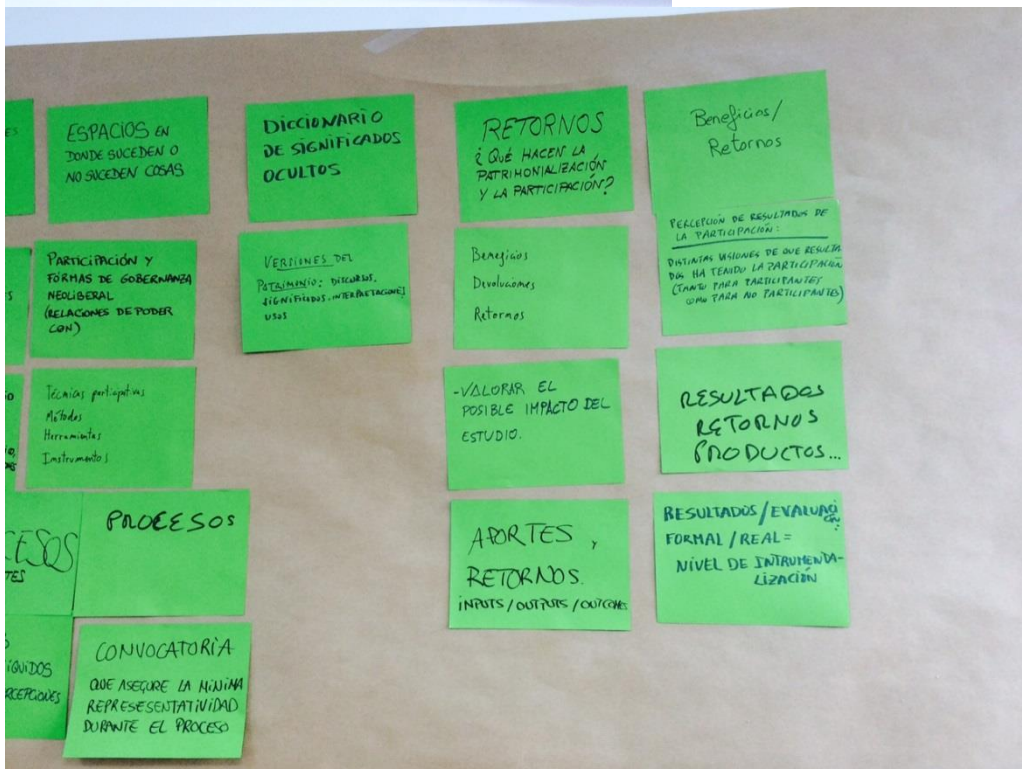 ESPACIOS EN
DONDE SUCEDEN O
NO SUCEDEN COSAS
PARTICIPACIÓN Y
FORMAS DE GOBERNANZA
NEOLIBERAL
(RELACIONES DE PODER
CON)
Técnicas participativas
Métodos
Herramientas
Instrumentos
PROCESOS
CONVOCATORIA
QUE ASEGURE LA MÍNIMA
REPRESESENTATIVIDAD
DURANTE EL PROCESO
DICCIONARIO
DE SIGNIFICADOS
OCULTOS
VERSIONES DEL
PATRIMONIO: DISCURSOS,
SIGNIFICADOS, INTERPRETACIONES
USOS
RETORNOS
¿QUÉ HACEN LA
PATRIMONIALIZACIÓN
Y LA PARTICIPACIÓN?
Beneficios
Devoluciones
Retornos
-VALORAR EL
POSIBLE IMPACTO DEL
ESTUDIO.
APORTES,
RETORNOS.
INPUTS/OUTPUTS/OUTCOMES
Beneficios/
Retornos
PERCEPCIÓN DE RESULTADOS DE
LA PARTICIPACIÓN:
DISTINTAS VISIONES DE QUE RESULTA
DOS HA TENIDO LA PARTICIPACIÓN
(TANTO PARA PARTICIPANTES
COMO PARA NO PARTICIPANTES)
RESULTADOS
RETORNOS
PRODUCTOS...
RESULTADOS/EVALUACIÓN:
FORMAL/REAL=
NIVEL DE INTRUMENDA-
LIZACIÓN